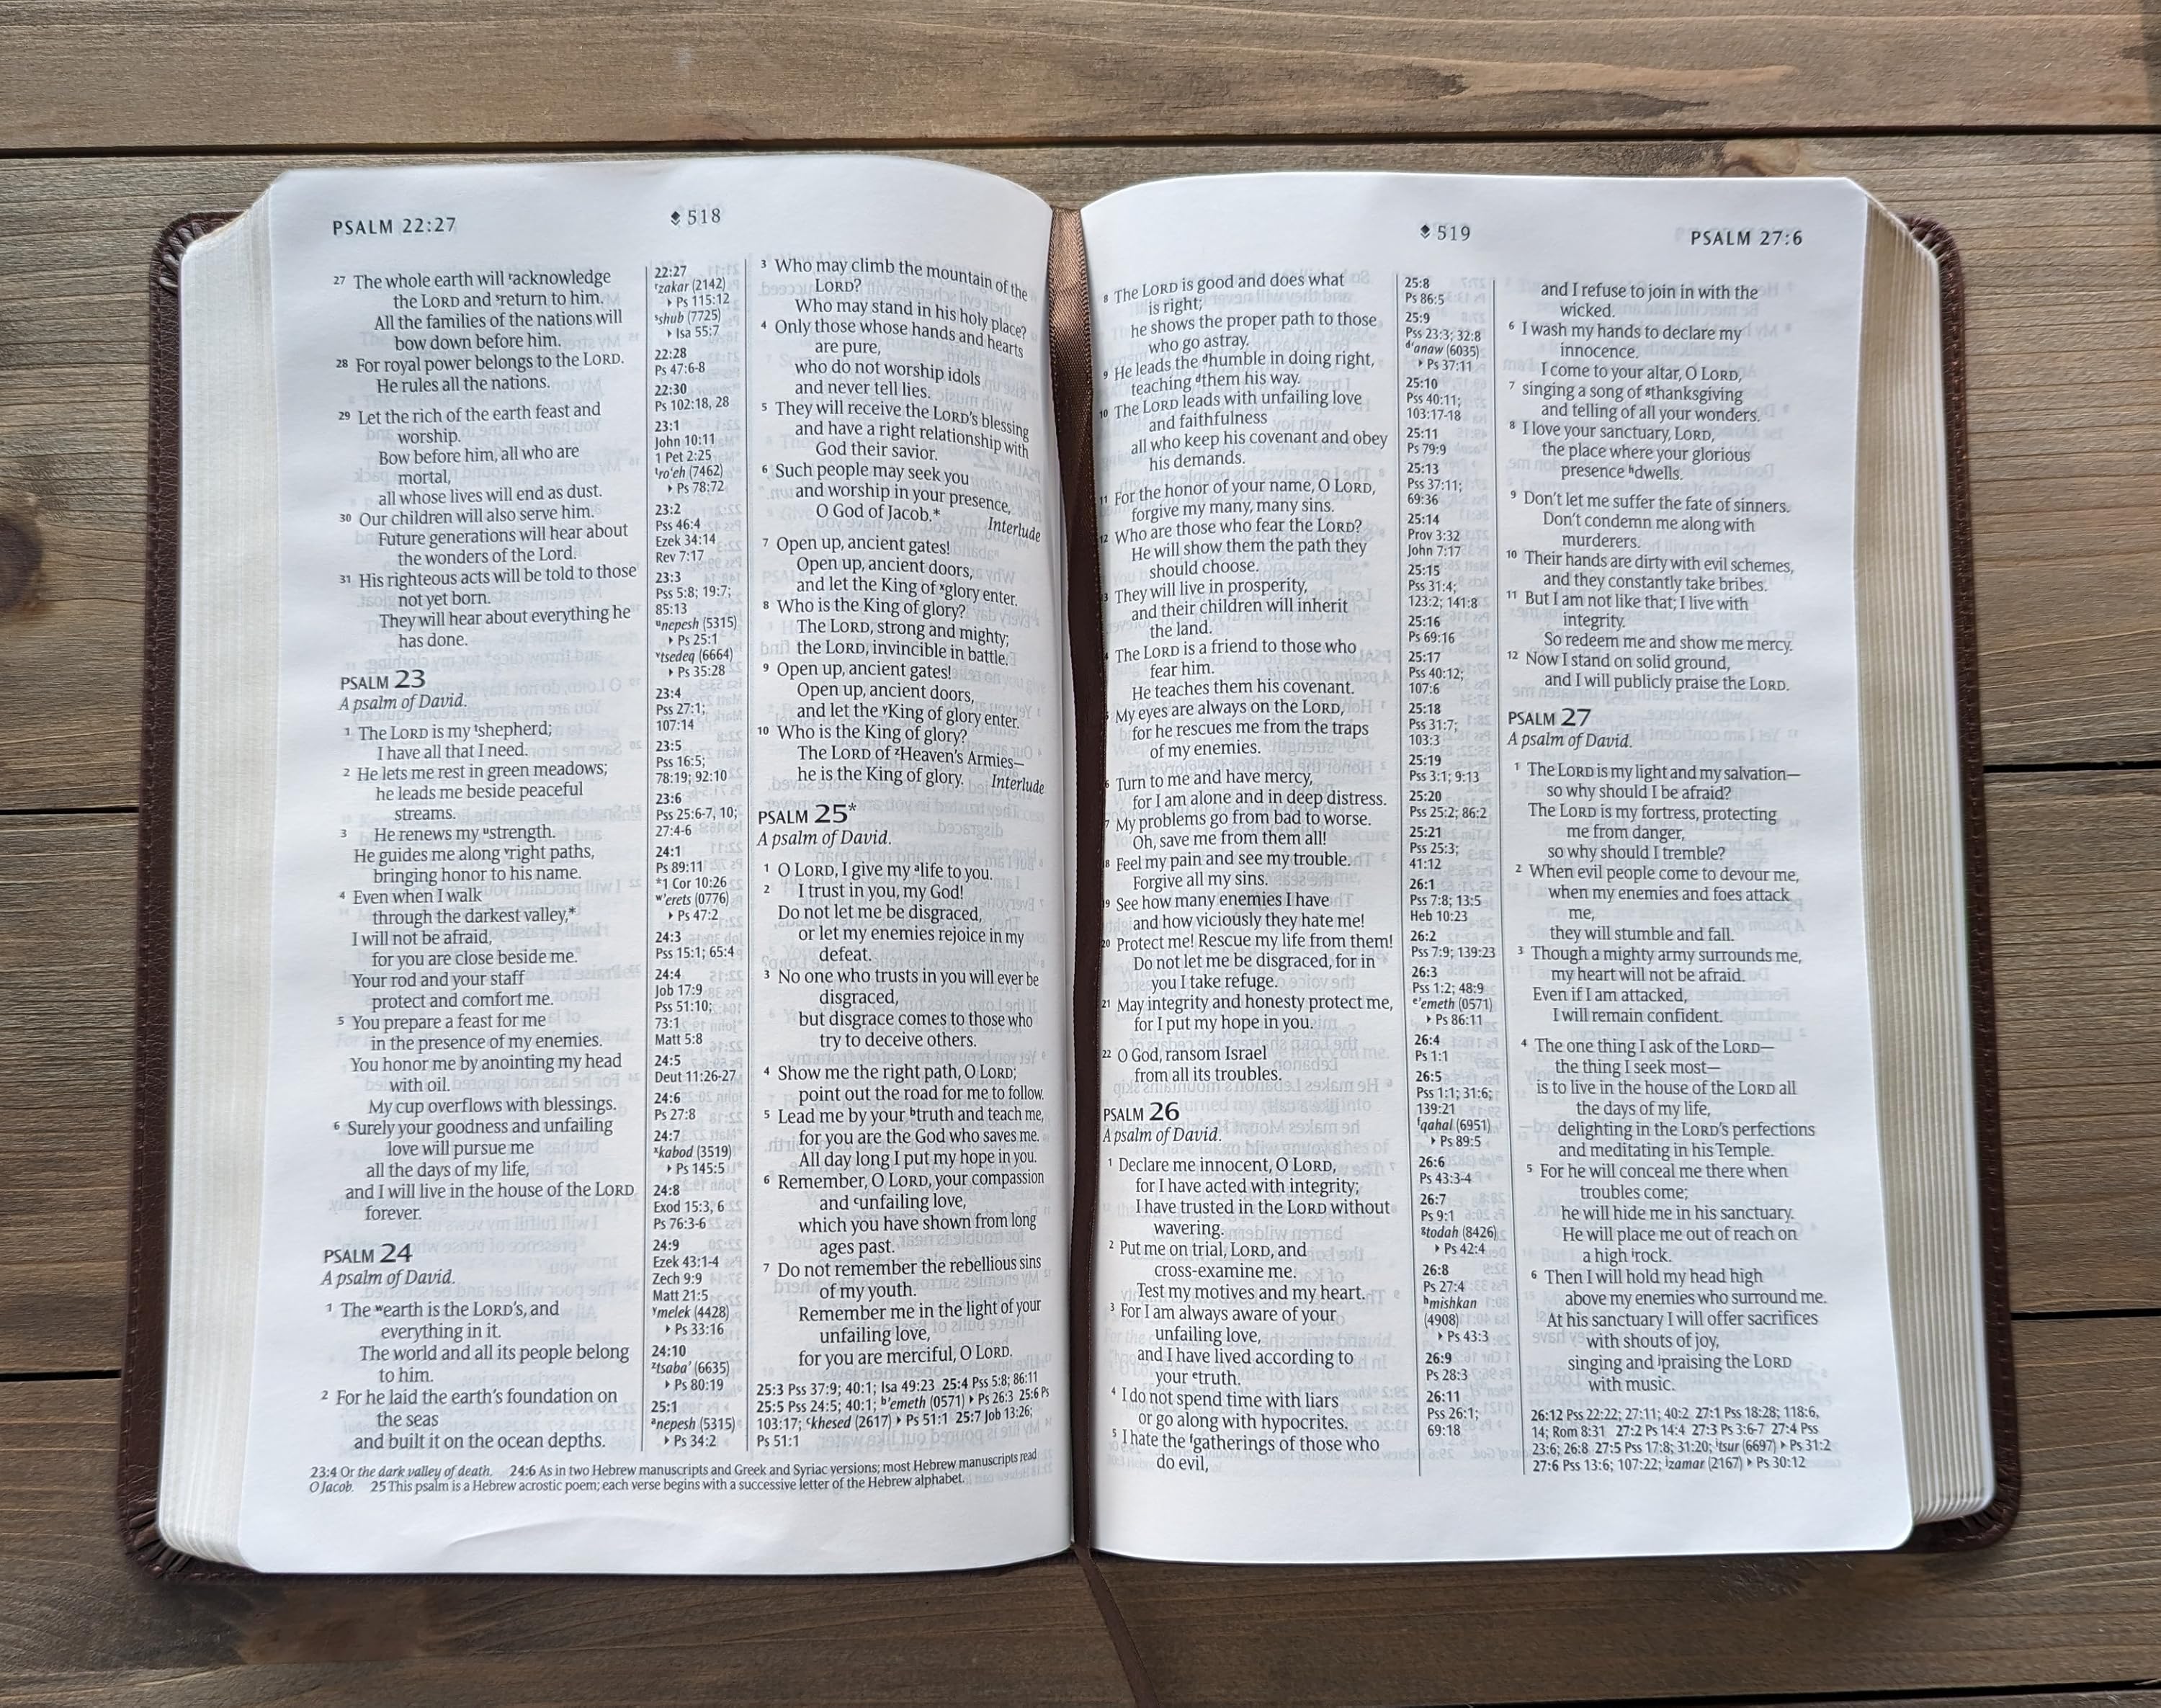 PSALM 22:27
518
27 The whole earth will ʳacknowledge
the LORD and ˢreturn to him.
All the families of the nations will
bow down before him.
28 For royal power belongs to the LORD.
He rules all the nations.
29 Let the rich of the earth feast and
worship.
Bow before him, all who are
mortal,
all whose lives will end as dust.
30 Our children will also serve him.
Future generations will hear about
the wonders of the Lord.
31 His righteous acts will be told to those
not yet born.
They will hear about everything he
has done.
PSALM 23
A psalm of David.
1 The LORD is my ᵗshepherd;
I have all that I need.
2 He lets me rest in green meadows;
he leads me beside peaceful
streams.
3 He renews my ᵘstrength.
He guides me along ᵛright paths,
bringing honor to his name.
4 Even when I walk
through the darkest valley,*
I will not be afraid,
for you are close beside me.
Your rod and your staff
protect and comfort me.
5 You prepare a feast for me
in the presence of my enemies.
You honor me by anointing my head
with oil.
My cup overflows with blessings.
6 Surely your goodness and unfailing
love will pursue me
all the days of my life,
and I will live in the house of the LORD
forever.
PSALM 24
A psalm of David.
1 The ʷearth is the LORD's, and
everything in it.
The world and all its people belong
to him.
2 For he laid the earth's foundation on
the seas
and built it on the ocean depths.
22:27
ʳzakar (2142)
▸ Ps 115:12
ˢshub (7725)
▸ Isa 55:7
22:28
Ps 47:6-8
22:30
Ps 102:18, 28
23:1
John 10:11
1 Pet 2:25
ᵗro'eh (7462)
▸ Ps 78:72
23:2
Pss 46:4
Ezek 34:14
Rev 7:17
23:3
Pss 5:8; 19:7;
85:13
ᵘnepesh (5315)
▸ Ps 25:1
ᵛtsedeq (6664)
▸ Ps 35:28
23:4
Pss 27:1;
107:14
23:5
Pss 16:5;
78:19; 92:10
23:6
Pss 25:6-7, 10;
27:4-6
24:1
Ps 89:11
*1 Cor 10:26
ʷ'erets (0776)
▸ Ps 47:2
24:3
Pss 15:1; 65:4
24:4
Job 17:9
Pss 51:10;
73:1
Matt 5:8
24:5
Deut 11:26-27
24:6
Ps 27:8
24:7
ˣkabod (3519)
▸ Ps 145:5
24:8
Exod 15:3, 6
Ps 76:3-6
24:9
Ezek 43:1-4
Zech 9:9
Matt 21:5
ʸmelek (4428)
▸ Ps 33:16
24:10
ᶻtsaba' (6635)
▸ Ps 80:19
25:1
ᵃnepesh (5315)
▸ Ps 34:2
3 Who may climb the mountain of the
LORD?
Who may stand in his holy place?
4 Only those whose hands and hearts
are pure,
who do not worship idols
and never tell lies.
5 They will receive the LORD's blessing
and have a right relationship with
God their savior.
6 Such people may seek you
and worship in your presence,
O God of Jacob.*
Interlude
7 Open up, ancient gates!
Open up, ancient doors,
and let the King of ˣglory enter.
8 Who is the King of glory?
The LORD, strong and mighty;
the LORD, invincible in battle.
9 Open up, ancient gates!
Open up, ancient doors,
and let the ʸKing of glory enter.
10 Who is the King of glory?
The LORD of ᶻHeaven's Armies—
he is the King of glory. Interlude
PSALM 25*
A psalm of David.
1 O LORD, I give my ᵃlife to you.
2 I trust in you, my God!
Do not let me be disgraced,
or let my enemies rejoice in my
defeat.
3 No one who trusts in you will ever be
disgraced,
but disgrace comes to those who
try to deceive others.
4 Show me the right path, O LORD;
point out the road for me to follow.
5 Lead me by your ᵇtruth and teach me,
for you are the God who saves me.
All day long I put my hope in you.
6 Remember, O LORD, your compassion
and ᶜunfailing love,
which you have shown from long
ages past.
7 Do not remember the rebellious sins
of my youth.
Remember me in the light of your
unfailing love,
for you are merciful, O LORD.
25:3 Pss 37:9; 40:1; Isa 49:23 25:4 Pss 5:8; 86:11
25:5 Pss 24:5; 40:1; ᵇ'emeth (0571) ▸ Ps 26:3 25:6 Ps
103:17; ᶜkhesed (2617) ▸ Ps 51:1 25:7 Job 13:26;
Ps 51:1
23:4 Or the dark valley of death. 24:6 As in two Hebrew manuscripts and Greek and Syriac versions; most Hebrew manuscripts read
O Jacob. 25 This psalm is a Hebrew acrostic poem; each verse begins with a successive letter of the Hebrew alphabet.
519
PSALM 27:6
8 The LORD is good and does what
is right;
he shows the proper path to those
who go astray.
9 He leads the ᵈhumble in doing right,
teaching ᵈthem his way.
10 The LORD leads with unfailing love
and faithfulness
all who keep his covenant and obey
his demands.
11 For the honor of your name, O LORD,
forgive my many, many sins.
12 Who are those who fear the LORD?
He will show them the path they
should choose.
3 They will live in prosperity,
and their children will inherit
the land.
The LORD is a friend to those who
fear him.
He teaches them his covenant.
My eyes are always on the LORD,
for he rescues me from the traps
of my enemies.
6 Turn to me and have mercy,
for I am alone and in deep distress.
7 My problems go from bad to worse.
Oh, save me from them all!
8 Feel my pain and see my trouble.
Forgive all my sins.
19 See how many enemies I have
and how viciously they hate me!
20 Protect me! Rescue my life from them!
Do not let me be disgraced, for in
you I take refuge.
21 May integrity and honesty protect me,
for I put my hope in you.
22 O God, ransom Israel
from all its troubles.
PSALM 26
A psalm of David.
1 Declare me innocent, O LORD,
for I have acted with integrity;
I have trusted in the LORD without
wavering.
2 Put me on trial, LORD, and
cross-examine me.
Test my motives and my heart.
3 For I am always aware of your
unfailing love,
and I have lived according to
your ᵉtruth.
4 I do not spend time with liars
or go along with hypocrites.
5 I hate the ᶠgatherings of those who
do evil,
25:8
Ps 86:5
25:9
Pss 23:3; 32:8
ᵈ'anaw (6035)
▸ Ps 37:11
25:10
Pss 40:11;
103:17-18
25:11
Ps 79:9
25:13
Pss 37:11;
69:36
25:14
Prov 3:32
John 7:17
25:15
Pss 31:4;
123:2; 141:8
25:16
Ps 69:16
25:17
Pss 40:12;
107:6
25:18
Pss 31:7;
103:3
25:19
Pss 3:1; 9:13
25:20
Pss 25:2; 86:2
25:21
Pss 25:3;
41:12
26:1
Pss 7:8; 13:5
Heb 10:23
26:2
Pss 7:9; 139:23
26:3
Pss 1:2; 48:9
ᵉ'emeth (0571)
▸ Ps 86:11
26:4
Ps 1:1
26:5
Pss 1:1; 31:6;
139:21
ᶠqahal (6951)
▸ Ps 89:5
26:6
Ps 43:3-4
26:7
Ps 9:1
ᵍtodah (8426)
▸ Ps 42:4
26:8
Ps 27:4
ʰmishkan
(4908)
▸ Ps 43:3
26:9
Ps 28:3
26:11
Pss 26:1;
69:18
and I refuse to join in with the
wicked.
6 I wash my hands to declare my
innocence.
I come to your altar, O LORD,
7 singing a song of ᵍthanksgiving
and telling of all your wonders.
8 I love your sanctuary, LORD,
the place where your glorious
presence ʰdwells.
9 Don't let me suffer the fate of sinners.
Don't condemn me along with
murderers.
10 Their hands are dirty with evil schemes,
and they constantly take bribes.
11 But I am not like that; I live with
integrity.
So redeem me and show me mercy.
12 Now I stand on solid ground,
and I will publicly praise the LORD.
PSALM 27
A psalm of David.
1 The LORD is my light and my salvation—
so why should I be afraid?
The LORD is my fortress, protecting
me from danger,
so why should I tremble?
2 When evil people come to devour me,
when my enemies and foes attack
me,
they will stumble and fall.
3 Though a mighty army surrounds me,
my heart will not be afraid.
Even if I am attacked,
I will remain confident.
4 The one thing I ask of the LORD—
the thing I seek most—
is to live in the house of the LORD all
the days of my life,
delighting in the LORD's perfections
and meditating in his Temple.
5 For he will conceal me there when
troubles come;
he will hide me in his sanctuary.
He will place me out of reach on
a high ⁱrock.
6 Then I will hold my head high
above my enemies who surround me.
At his sanctuary I will offer sacrifices
with shouts of joy,
singing and ʲpraising the LORD
with music.
26:12 Pss 22:22; 27:11; 40:2 27:1 Pss 18:28; 118:6,
14; Rom 8:31 27:2 Ps 14:4 27:3 Ps 3:6-7 27:4 Pss
23:6; 26:8 27:5 Pss 17:8; 31:20; ⁱtsur (6697) ▸ Ps 31:2
27:6 Pss 13:6; 107:22; ʲzamar (2167) ▸ Ps 30:12